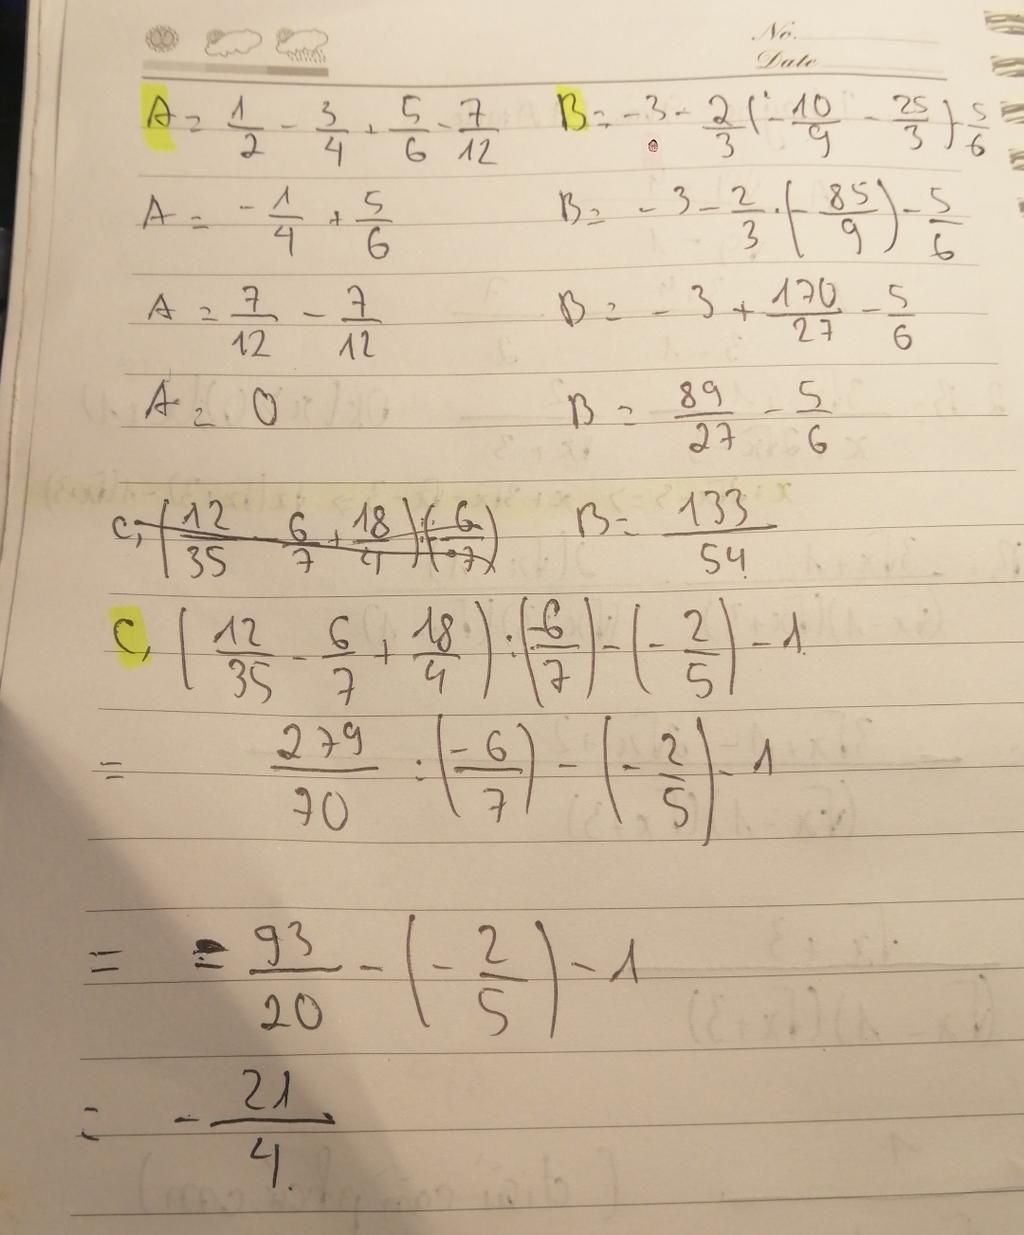 No.
Date
A = 1/2 - 3/4 + 5/6 - 7/12
A = -1/4 + 5/6
A = 7/12 - 7/12
A = 0
B = -3 - 2/3 (-10/9 - 25/3) - 5/6
B = -3 - 2/3 · (-85/9) - 5/6
B = -3 + 170/27 - 5/6
B = 89/27 - 5/6
B = 133/54
C, (12/35 - 6/7 + 18/4) : (-6/7)
C, (12/35 - 6/7 + 18/4) : (-6/7) - (-2/5) - 1
= 279/70 : (-6/7) - (-2/5) - 1
= -93/20 - (-2/5) - 1
= -21/4.